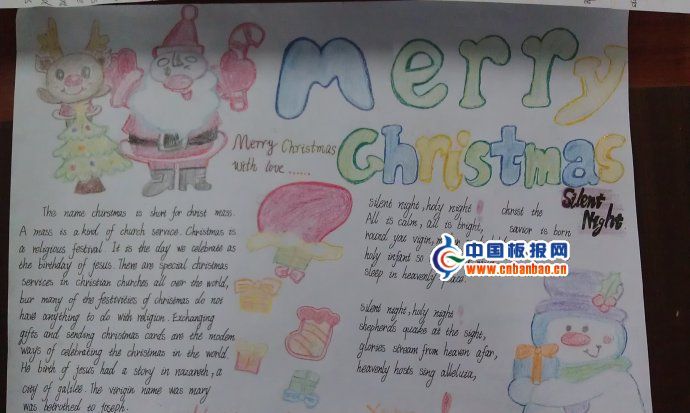 Merry
Christmas
Merry Christmas
with love ......
The name christmas is short for christ mass.
A mass is a kind of church service. Christmas is
a religious festival. It is the day we celebrate as
the birthday of jesus. There are special christmas
services in christian churches all over the world,
bur many of the festivities of christmas do not
have anything to do with religion. Exchanging
gifts and sending christmas cards are the modem
ways of celebrating the christmas in the world.
He birth of jesus had a story in nazareth, a
city of galilee. The verigin name was mary
was betrothed to joseph.
Silent
Night
silent night, holy night
All is calm, all is bright,
round you vigin,
holy infant so
sleep in heavenly
silent night, holy night
shepherds quake at the sight,
glories stream from heaven afar,
heavenly hosts sing alleluza,
christ the
savior is born
中国板报网
www.cnbanbao.cn